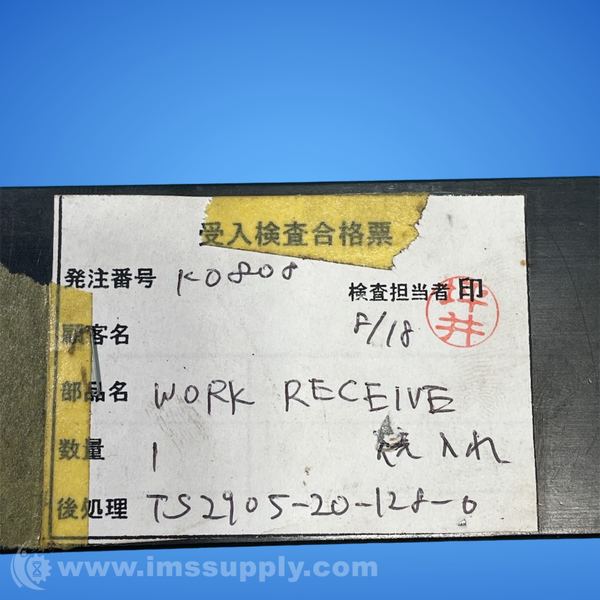 受入検査合格票
発注番号 K0808
検査担当者 印
坪井
顧客名
8/18
部品名 WORK RECEIVE
数量 1 焼入れ
後処理 TS2905-20-128-0
www.imssupply.com